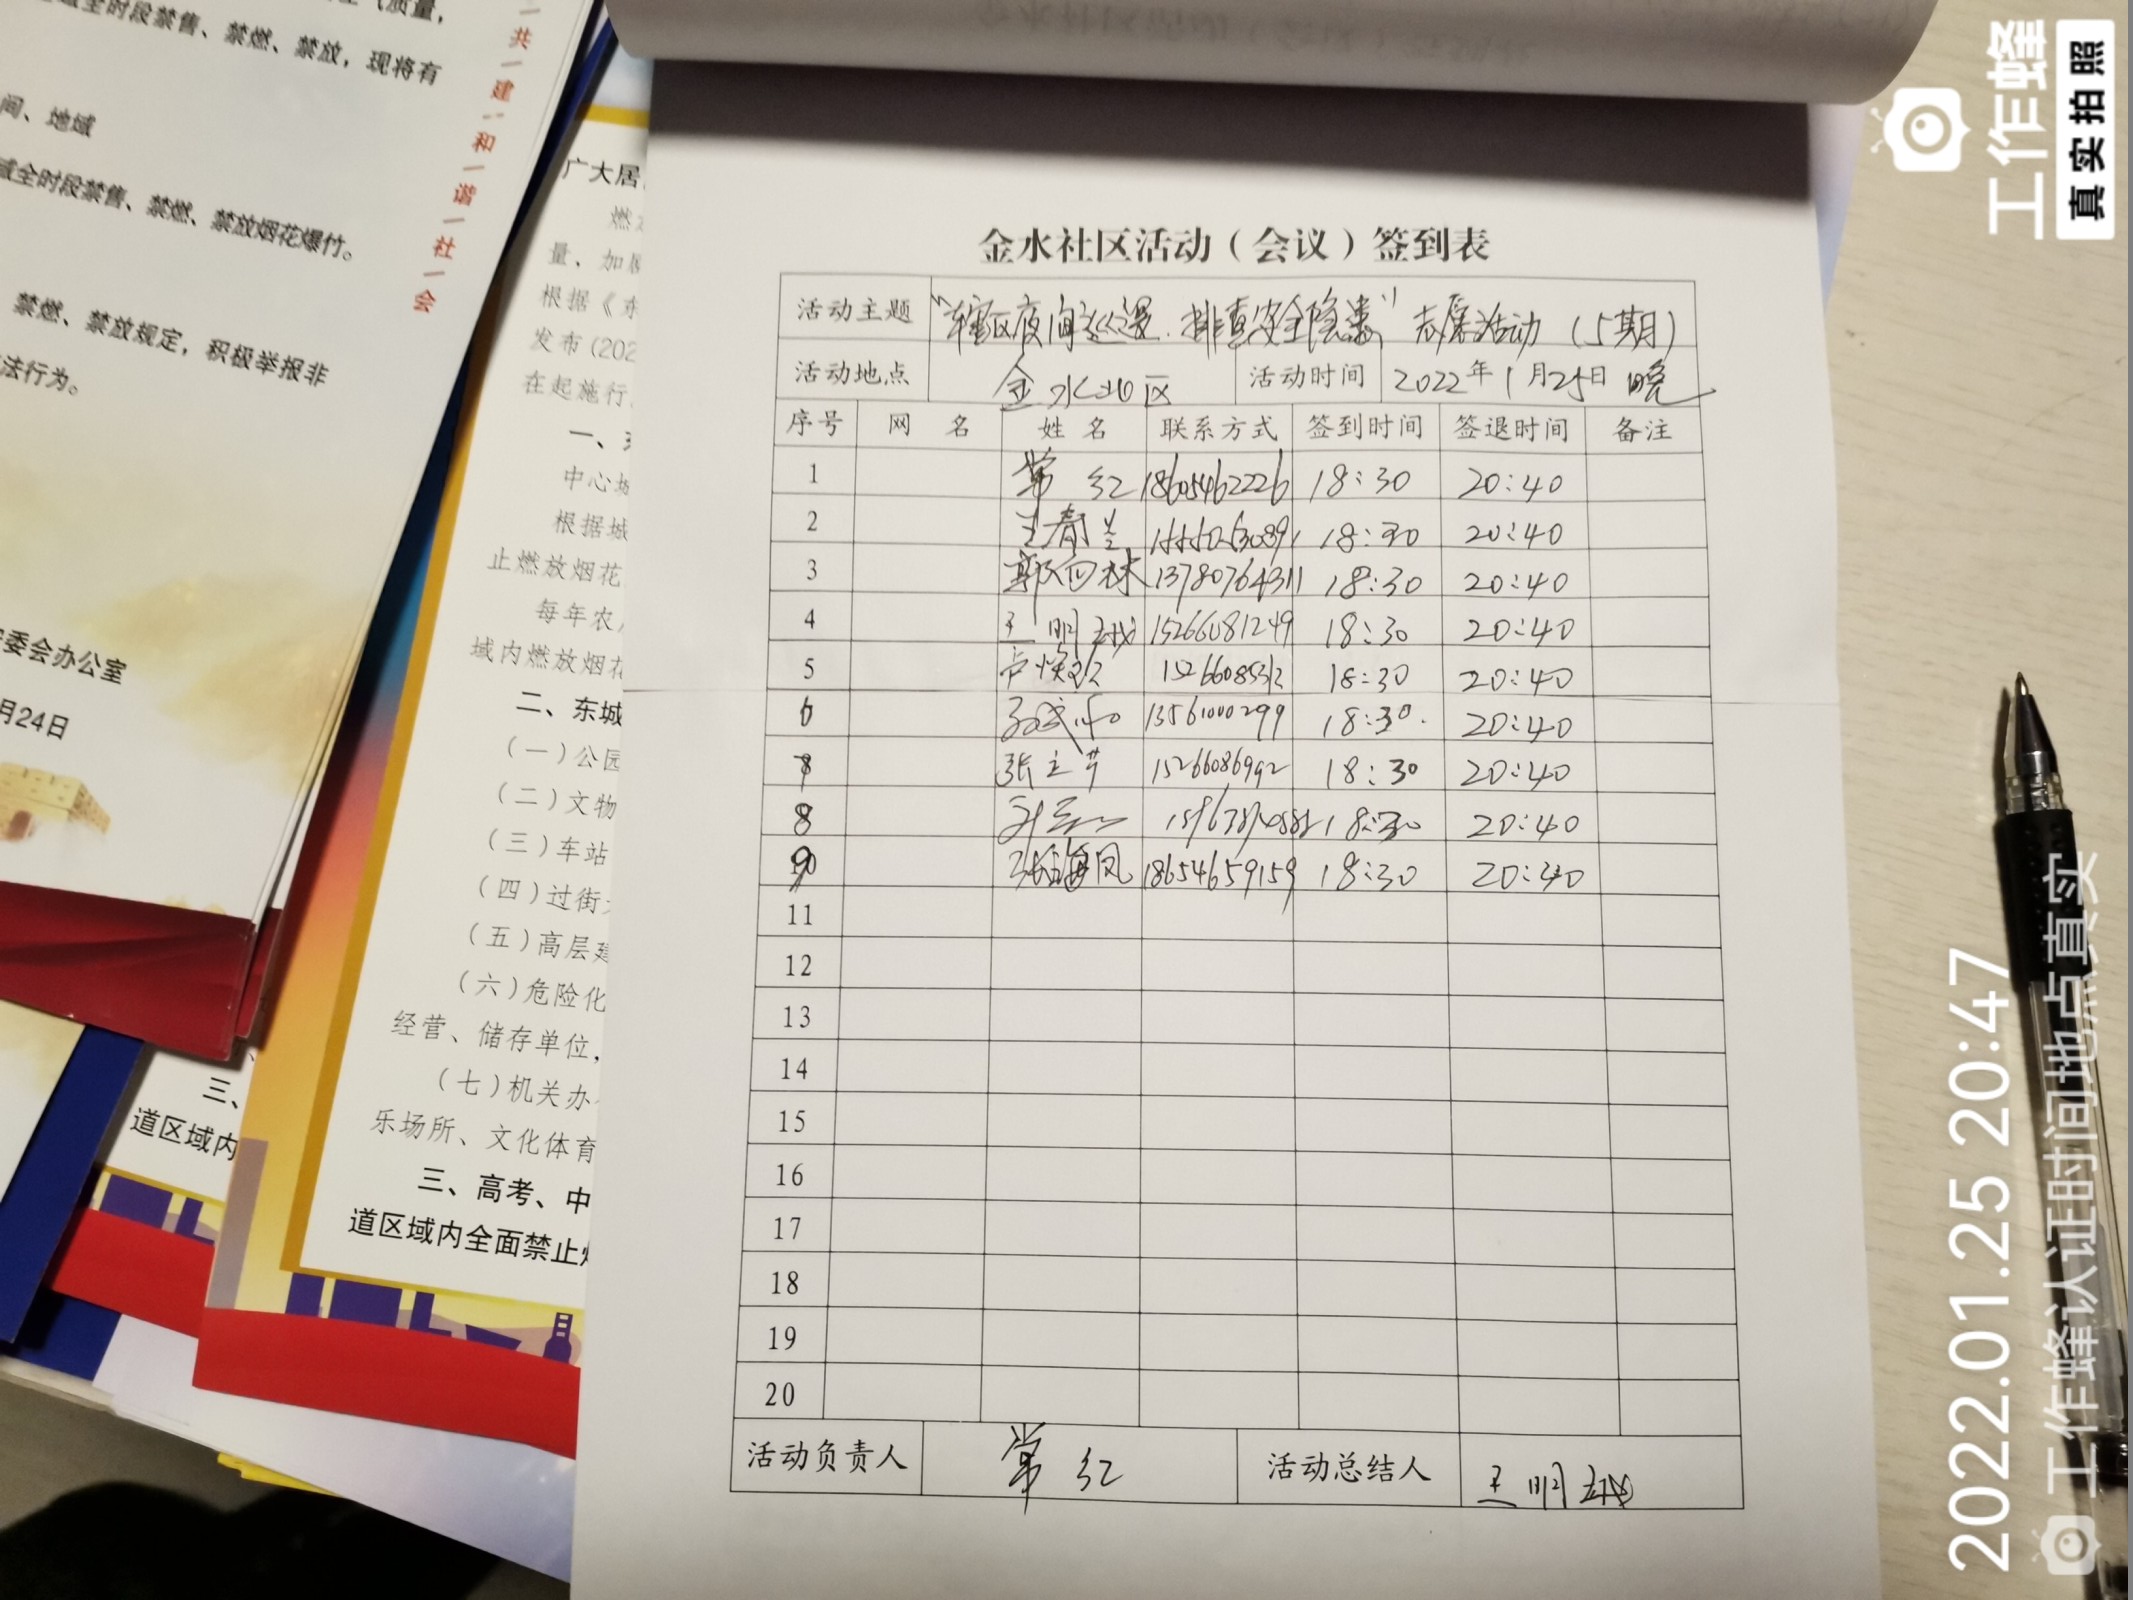 气质量，
全时段禁售、禁燃、禁放，现将有
间、地域
域全时段禁售、禁燃、禁放烟花爆竹。
禁燃、禁放规定，积极举报非
法行为。
委会办公室
月24日
共 建 和 谐 社 会
广大居
燃
量、加
根据《东
发布(202
在起施行
一、
中心城
根据城
止燃放烟花
每年农
域内燃放烟花
二、东城
（一）公园
（二）文物
（三）车站
（四）过街
（五）高层建
（六）危险化
经营、储存单位，
（七）机关办
乐场所、文化体育
三、高考、中
道区域内全面禁止
三、
道区域内
金水社区活动（会议）签到表
活动主题 “辖区夜间巡逻.排查安全隐患”志愿活动（5期）
活动地点 金水社区 活动时间 2022年1月25日晚
序号 网名 姓名 联系方式 签到时间 签退时间 备注
1 常红 18605462226 18:30 20:40
2 王春兰 18:30 20:40
3 13780764311 18:30 20:40
4 王明 15266081249 18:30 20:40
5 18:30 20:40
6 13561000299 18:30. 20:40
7 张立 15266086992 18:30 20:40
8 18:30 20:40
9 张海凤 18654659159 18:30 20:40
11
12
13
14
15
16
17
18
19
20
活动负责人 常红 活动总结人 王明
工作蜂
真实拍照
2022.01.25 20:47
工作蜂认证时间地点真实